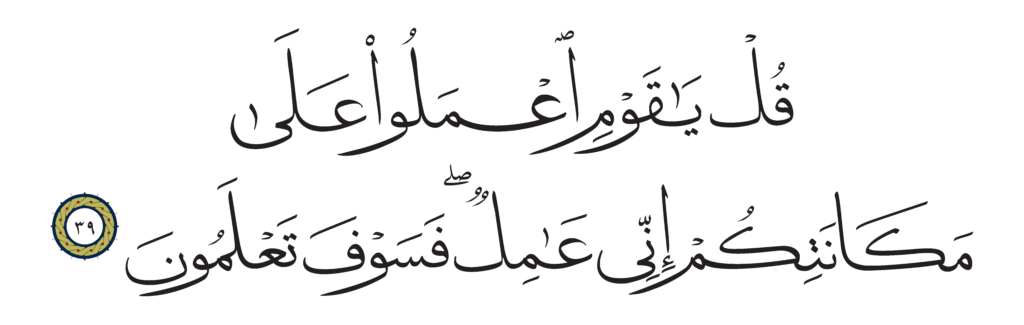 قُلْ يَٰقَوْمِ ٱعْمَلُوا۟ عَلَىٰ
مَكَانَتِكُمْ إِنِّى عَٰمِلٌ ۖ فَسَوْفَ تَعْلَمُونَ ٣٩